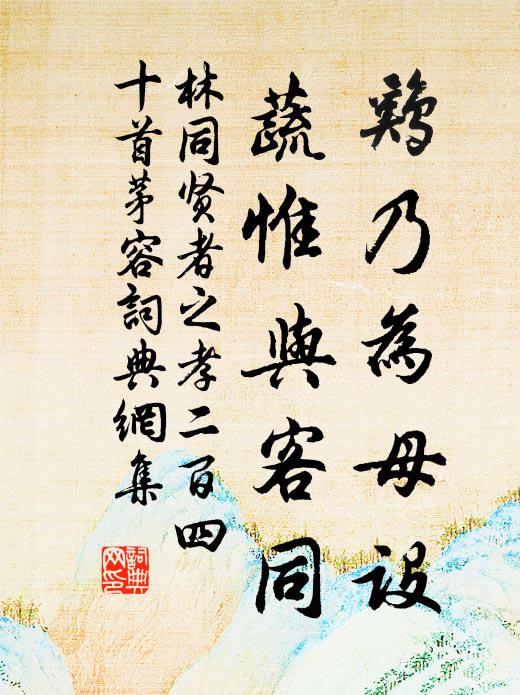 鷄乃為母設
蔬惟與客同
林同贤者之孝二百四
十首茅容詞典網集
詞典
网印